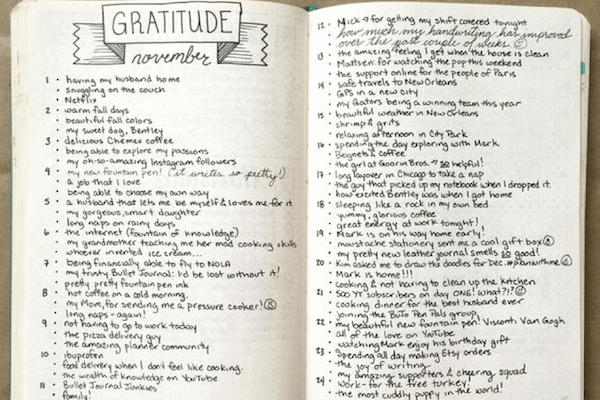 GRATITUDE
november
1 • having my husband home
• snuggling on the couch
• Netflix
2 • warm fall days
• beautiful fall colors
• my sweet dog, Bentley
3 • delicious Chemex coffee
• being able to explore my passions
• my oh-so-amazing Instagram followers
4 • my new fountain pen! (it writes so pretty!)
• a job that I love
• being able to choose my own way
5 • a husband that lets me be myself & loves me for it
• my gorgeous, smart daughter
• long naps on rainy days
6 • the internet (fountain of knowledge)
• my grandmother teaching me her mad cooking skills
• whoever invented ice cream...
7 • being financially able to fly to NOLA
• my trusty Bullet Journal: I'd be lost without it!
• pretty pretty fountain pen ink
8 • hot coffee on a cold morning.
• my Mom, for sending me a pressure cooker!
• long naps - again!
9 • not having to go to work today
• the pizza delivery guy
• the amazing planner community
10 • ibuprofen
• food delivery when I don't feel like cooking.
• the wealth of knowledge on YouTube
11 • Bullet Journal Junkies
• family!
12 • Mick → for getting my shift covered tonight
• how much my handwriting has improved
over the past couple of weeks
• the amazing feeling I get when the house is clean
13 • Mattsen: for watching the pup this weekend
• the support online for the people of Paris
14 • safe travels to New Orleans
• GPS in a new city
• my Gators being a winning team this year
15 • beautiful weather in New Orleans
• shrimp & grits
• relaxing afternoon in City Park
16 • spending the day exploring with Mark
• Beignets & coffee
• the girl at Goorin Bros. → so helpful!
17 • long layover in Chicago to take a nap
• the guy that picked up my notebook when I dropped it
• how excited Bentley was when I got home
18 • sleeping like a rock in my own bed
• yummy, glorious coffee
• great energy at work tonight!
19 • Mark is on his way home early!
• moustache stationery sent me a cool gift box
• my pretty new leather journal smells so good!
20 • Kim asked me to draw the doodles for Dec. #planwithme
• Mark is home!!!
• cooking & not having to clean up the kitchen
21 • 500 YT subscribers on day ONE! What?!?
• cooking dinner for the best husband ever
• joining the BuJo Pen Pals group
22 • my beautiful new fountain pen! Visconti Van Gogh
• all of the love on YouTube
• watching Mark enjoy his birthday gift
23 • Spending all day making Etsy orders
• the joy of writing
• my amazing supporters & cheering squad
24 • Work - for the free turkey!
• the most cuddly puppy in the world!